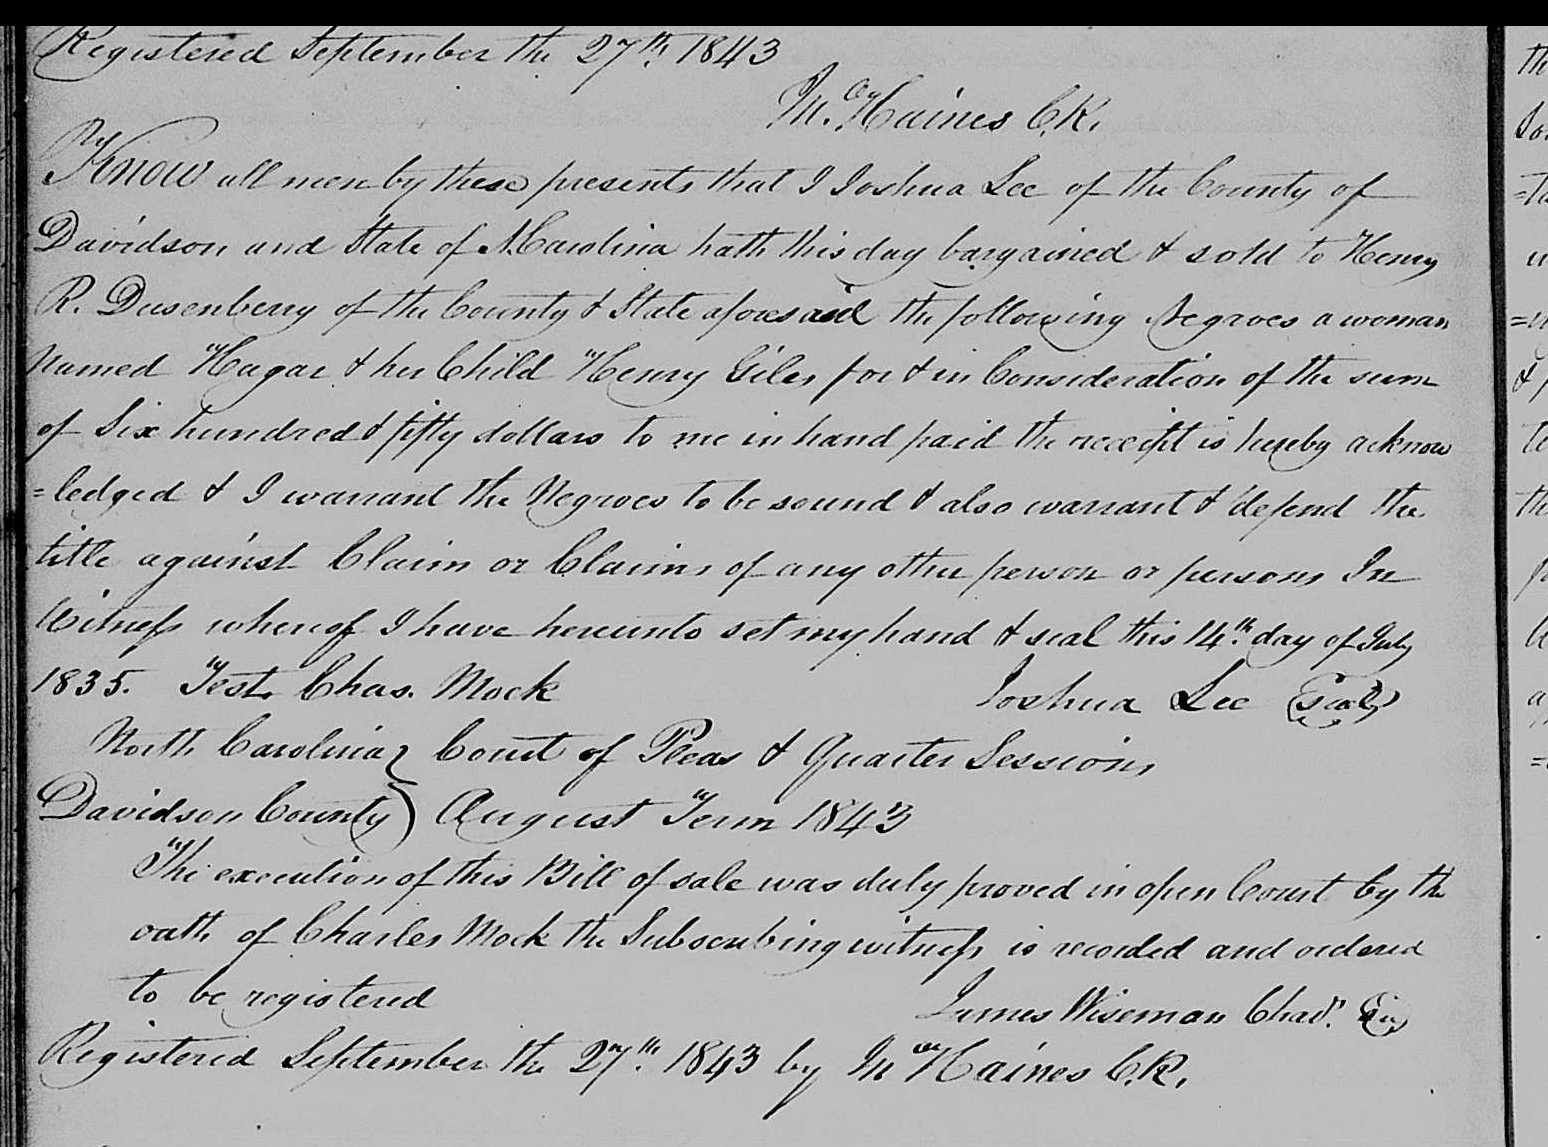 Registered September the 27th 1843
M. Haines C.R.
Know all men by these presents that I Joshua Lee of the County of
Davidson and State of N Carolina hath this day bargained & sold to Henry
R. Dusenberry of the County & State aforesaid the following Negroes a woman
named Hagar & her Child Henry Giles for & in Consideration of the sum
of Six hundred & fifty dollars to me in hand paid the receipt is hereby acknow
=ledged & I warrant the Negroes to be sound & also warrant & defend the
title against Claim or Claims of any other person or persons In
Witness whereof I have hereunto set my hand & seal this 14th day of July
1835. Test. Chas. Mock Joshua Lee (seal)
North Carolina } Court of Pleas & Quarter Sessions
Davidson County } August Term 1843
The execution of this Bill of sale was duly proved in open Court by the
oath of Charles Mock the Subscribing witness is recorded and ordered
to be registered James Wiseman
Registered September the 27th 1843 by M Haines C.R.
th